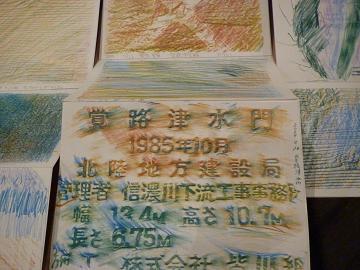 覚路津水門
1985年10月
北陸地方建設局
管理者 信濃川下流工事事務所
幅 13.4M 高さ 10.7M
長さ 6.75M
施工 株式会社